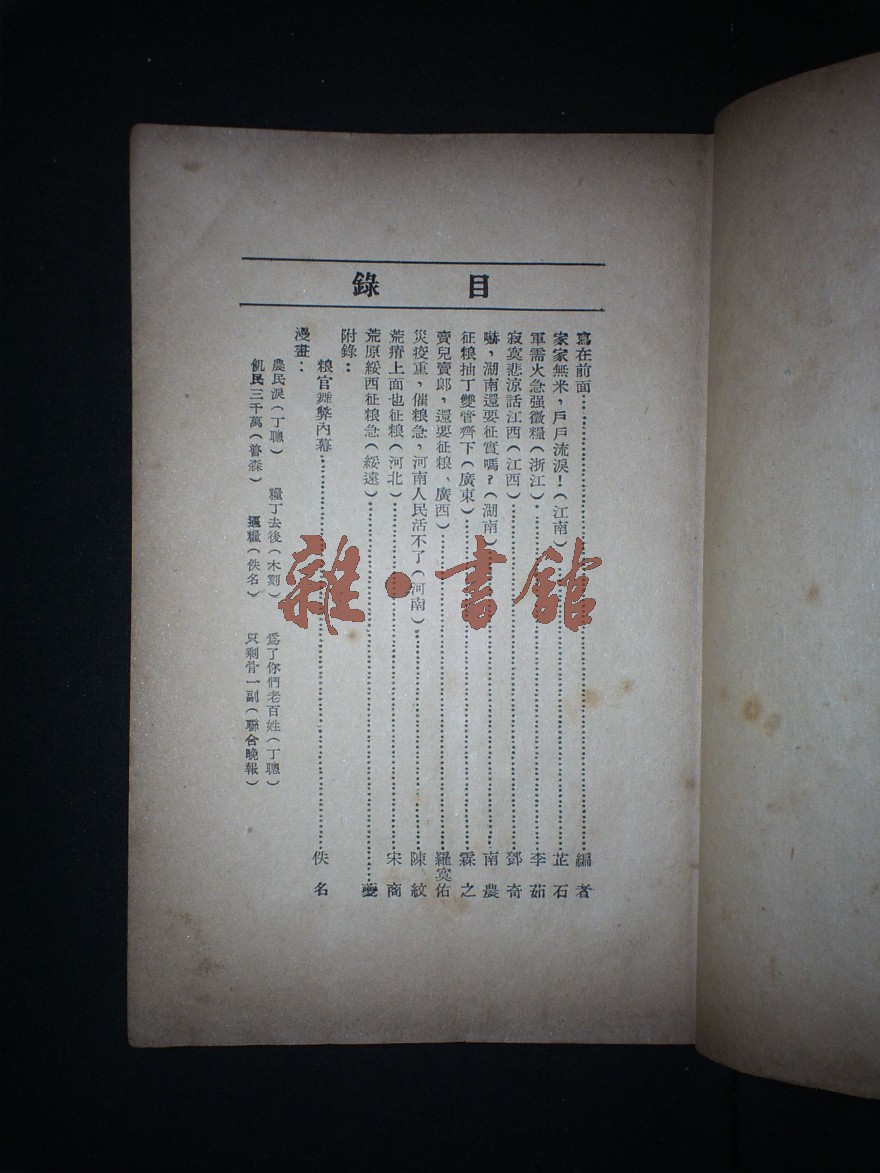 目錄
寫在前面……編者
家家無米，戶戶流淚！（江南）……芷石
軍需火急强徵糧（浙江）……李茹
寂寞悲涼話江西（江西）……鄧奇
嚇，湖南還要征實嗎？（湖南）……南農
征粮抽丁雙管齊下（廣東）……霖之
賣兒賣郎，還要征粮、廣西）……羅寞佑
災疫重，催粮急，河南人民活不了（河南）……陳紋
荒瘠上面也征粮（河北）……宋商
荒原綏西征粮急（綏遠）……
附錄：
粮官舞弊內幕……佚名
漫畫：
農民淚（丁聰） 糧丁去後（木刻） 爲了你們老百姓（丁聰）
飢民三千萬（普森） 逼糧（佚名） 只剩骨一副（聯合晚報）
雜·書館